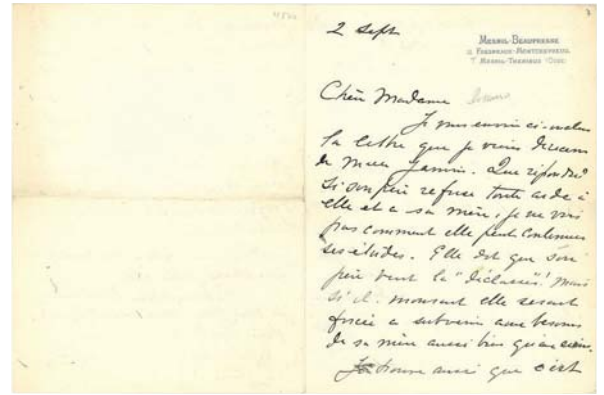 2 Sept
Mesnil-Beaufresne
Fresneaux-Montchevreuil
Chère Madame
Je vous envoie ci-inclus
la lettre que je viens de recevoir
de Melle Jamin. Que répondre?
Si son père refuse toute aide à
elle et a sa mère, je ne vois
pas comment elle peut continuer
ses études. Elle dit que son
père veut la "déclasser". Mais
si il mourait elle serait
forcée a subvenir aux besoins
de sa mère aussi bien qu'au sien.
Je trouve aussi que c'est